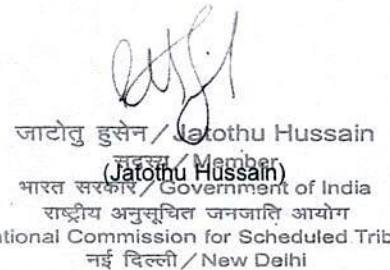 जाटोतु हुसेन / Jatothu Hussain
सदस्य / Member
(Jatothu Hussain)
भारत सरकार / Government of India
राष्ट्रीय अनुसूचित जनजाति आयोग
ational Commission for Scheduled Trib
नई दिल्ली / New Delhi